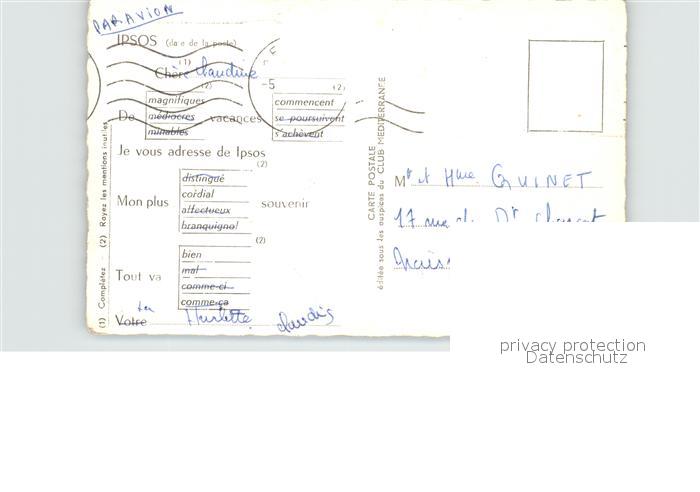 PAR AVION
IPSOS (date de la poste)
(1)
Chère Claudine
-5
(2) (2)
magnifiques commencent
De médiocres vacances se poursuivent
minables s'achèvent
Je vous adresse de Ipsos
(2)
distingué
cordial
Mon plus affectueux souvenir
branquignol
(2)
bien
mal
Tout va comme-ci
comme-ça
Votre
(1) Complétez - (2) Rayez les mentions inutiles
CARTE POSTALE
éditée sous les auspices du CLUB MEDITERRANEE
Mr et Mme QUINET
17 rue du Dr
privacy protection
Datenschutz